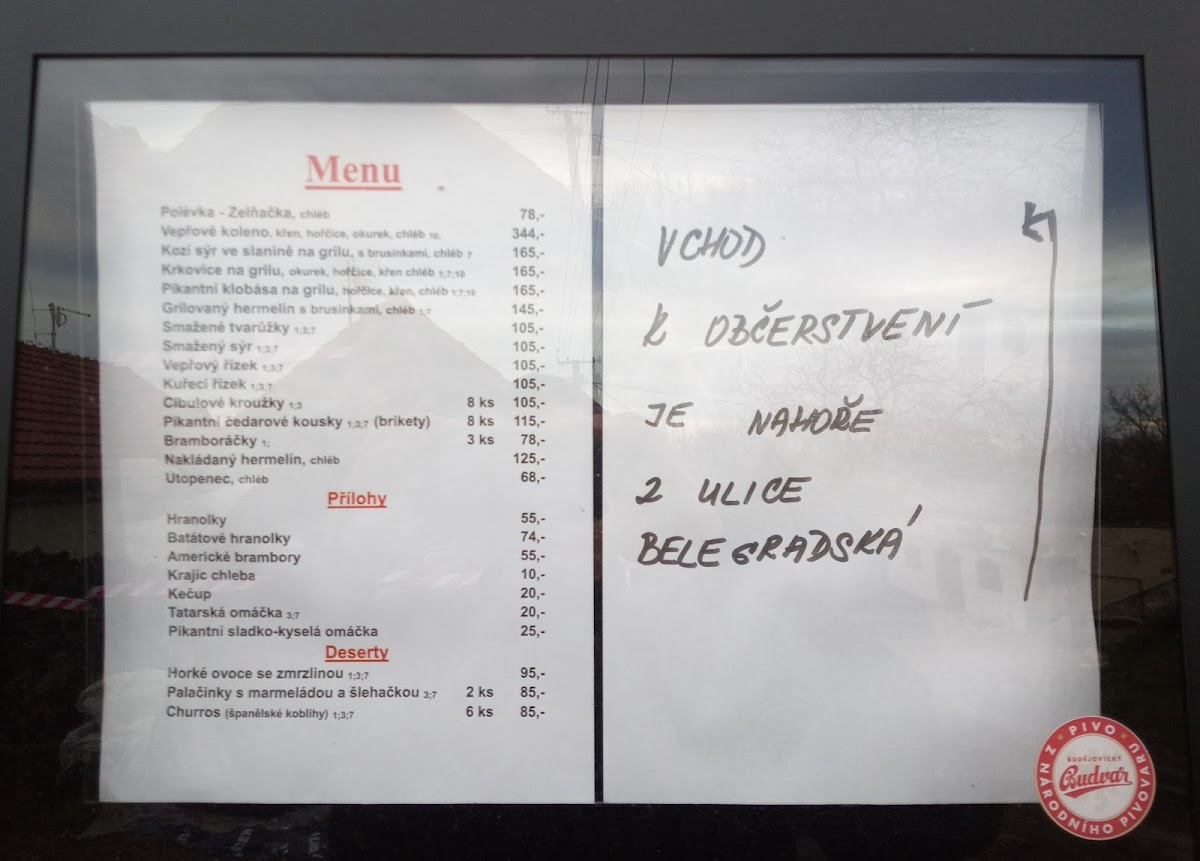 Menu
Polévka - Zelňačka, chléb 78,-
Vepřové koleno, křen, hořčice, okurek, chléb 10, 344,-
Kozí sýr ve slanině na grilu, s brusinkami, chléb 7 165,-
Krkovice na grilu, okurek, hořčice, křen chléb 1;7;10 165,-
Pikantní klobása na grilu, hořčice, křen, chléb 1;7;10 165,-
Grilovaný hermelín s brusinkami, chléb 1;7 145,-
Smažené tvarůžky 1;3;7 105,-
Smažený sýr 1;3;7 105,-
Vepřový řízek 1;3;7 105,-
Kuřecí řízek 1;3;7 105,-
Cibulové kroužky 1;3 8 ks 105,-
Pikantní čedarové kousky 1;3;7 (brikety) 8 ks 115,-
Bramboráčky 1; 3 ks 78,-
Nakládaný hermelín, chléb 125,-
Utopenec, chléb 68,-
Přílohy
Hranolky 55,-
Batátové hranolky 74,-
Americké brambory 55,-
Krajíc chleba 10,-
Kečup 20,-
Tatarská omáčka 3;7 20,-
Pikantní sladko-kyselá omáčka 25,-
Deserty
Horké ovoce se zmrzlinou 1;3;7 95,-
Palačinky s marmeládou a šlehačkou 3;7 2 ks 85,-
Churros (španělské koblihy) 1;3;7 6 ks 85,-
VCHOD
K OBČERSTVENÍ
JE NAHOŘE
Z ULICE
BELEGRADSKÁ
PIVO
Z NÁRODNÍHO PIVOVARU
BUDĚJOVICKÝ
Budvar